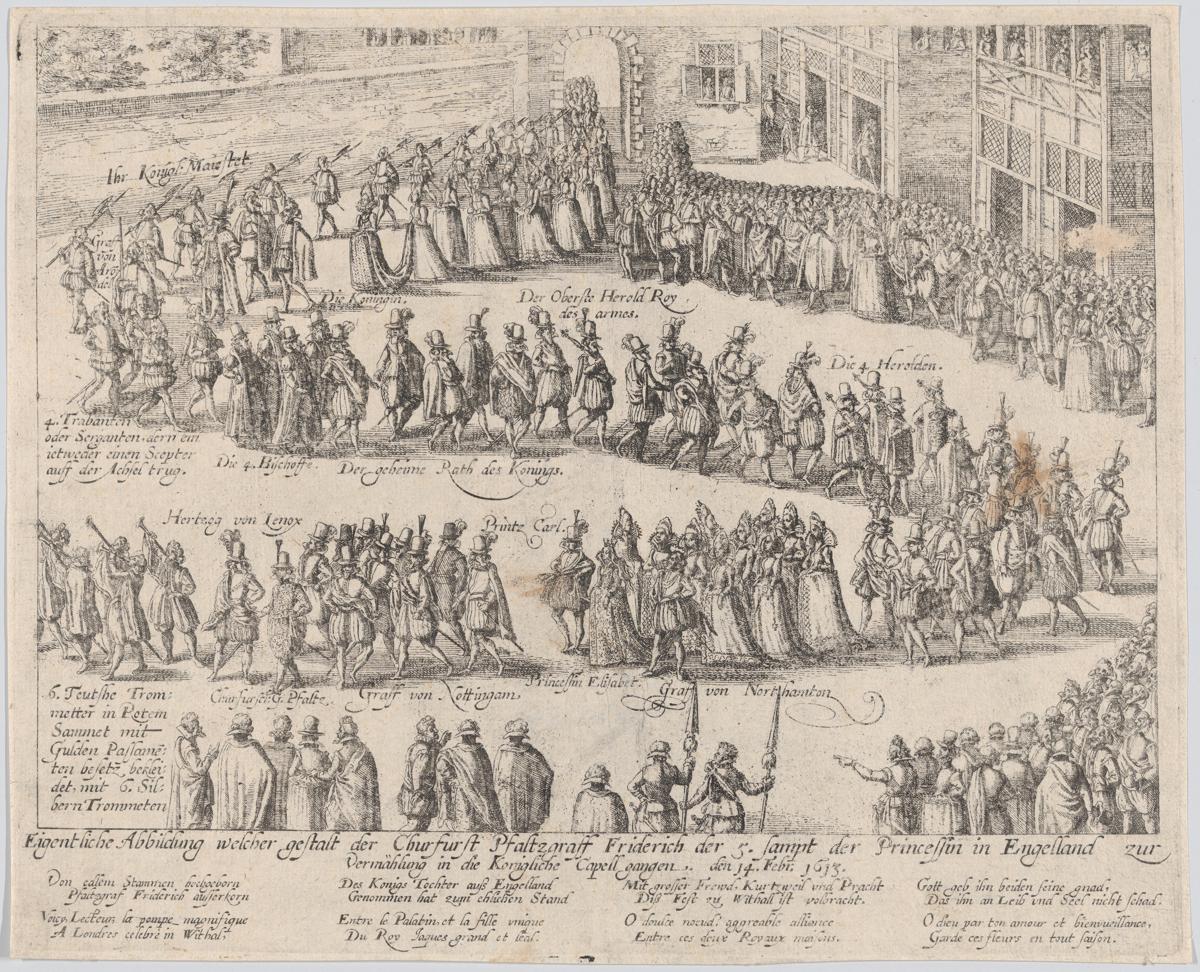 Ihr Königl: Maiestet
Graf
von
Arō
del
Die Konigin.
Der Oberste Herold Roy
des armes.
Die 4 Herolden.
4. Trabanten
oder Serganten, dern ein
ietweder einen Scepter
auff der Achsel trug.
Die 4. Bischoffe.
Der geheime Rath des Konings.
Hertzog von Lenox
Printz Carl.
6. Teutshe Trom:
metter in Rotem
Sammet mit
Gulden Passamē:
ten besetz beklei:
det, mit 6. Sil:
bern Trommeten
Churfurst. G. Pfaltz.
Graff von Nottingam
Princessin Elisabet.
Graf von Northamton
Eigentliche Abbildung welcher gestalt der Churfurst Pfaltzgraff Friderich der 5. sampt der Princessin in Engelland zur
Vermählung in die Königliche Capell gangen. den 14. Febr. 1613.
Von edlem Stammen hochgeborn
Pfaltzgraf Friderich ausserkorn
Des Königs Tochter auß Engelland
Genommen hat zum ehlichen Stand
Mit grosser Frewd, Kurtzweil vnd Pracht
Diß Fest zu Withall ist volbracht.
Gott geb ihn beiden seine gnad,
Das ihn an Leib vnd Seel nicht schad.
Voicy, Lecteur, la pompe magnifique
A Londres celebré in Withal,
Entre le Palatin, et la fille vnique
Du Roy Jaques grand et leal.
O doulce noeud! aggreable alliance
Entre ces deux Royaux maisons.
O dieu par ton amour et bienvueillance,
Garde ces fleurs en tout saison.